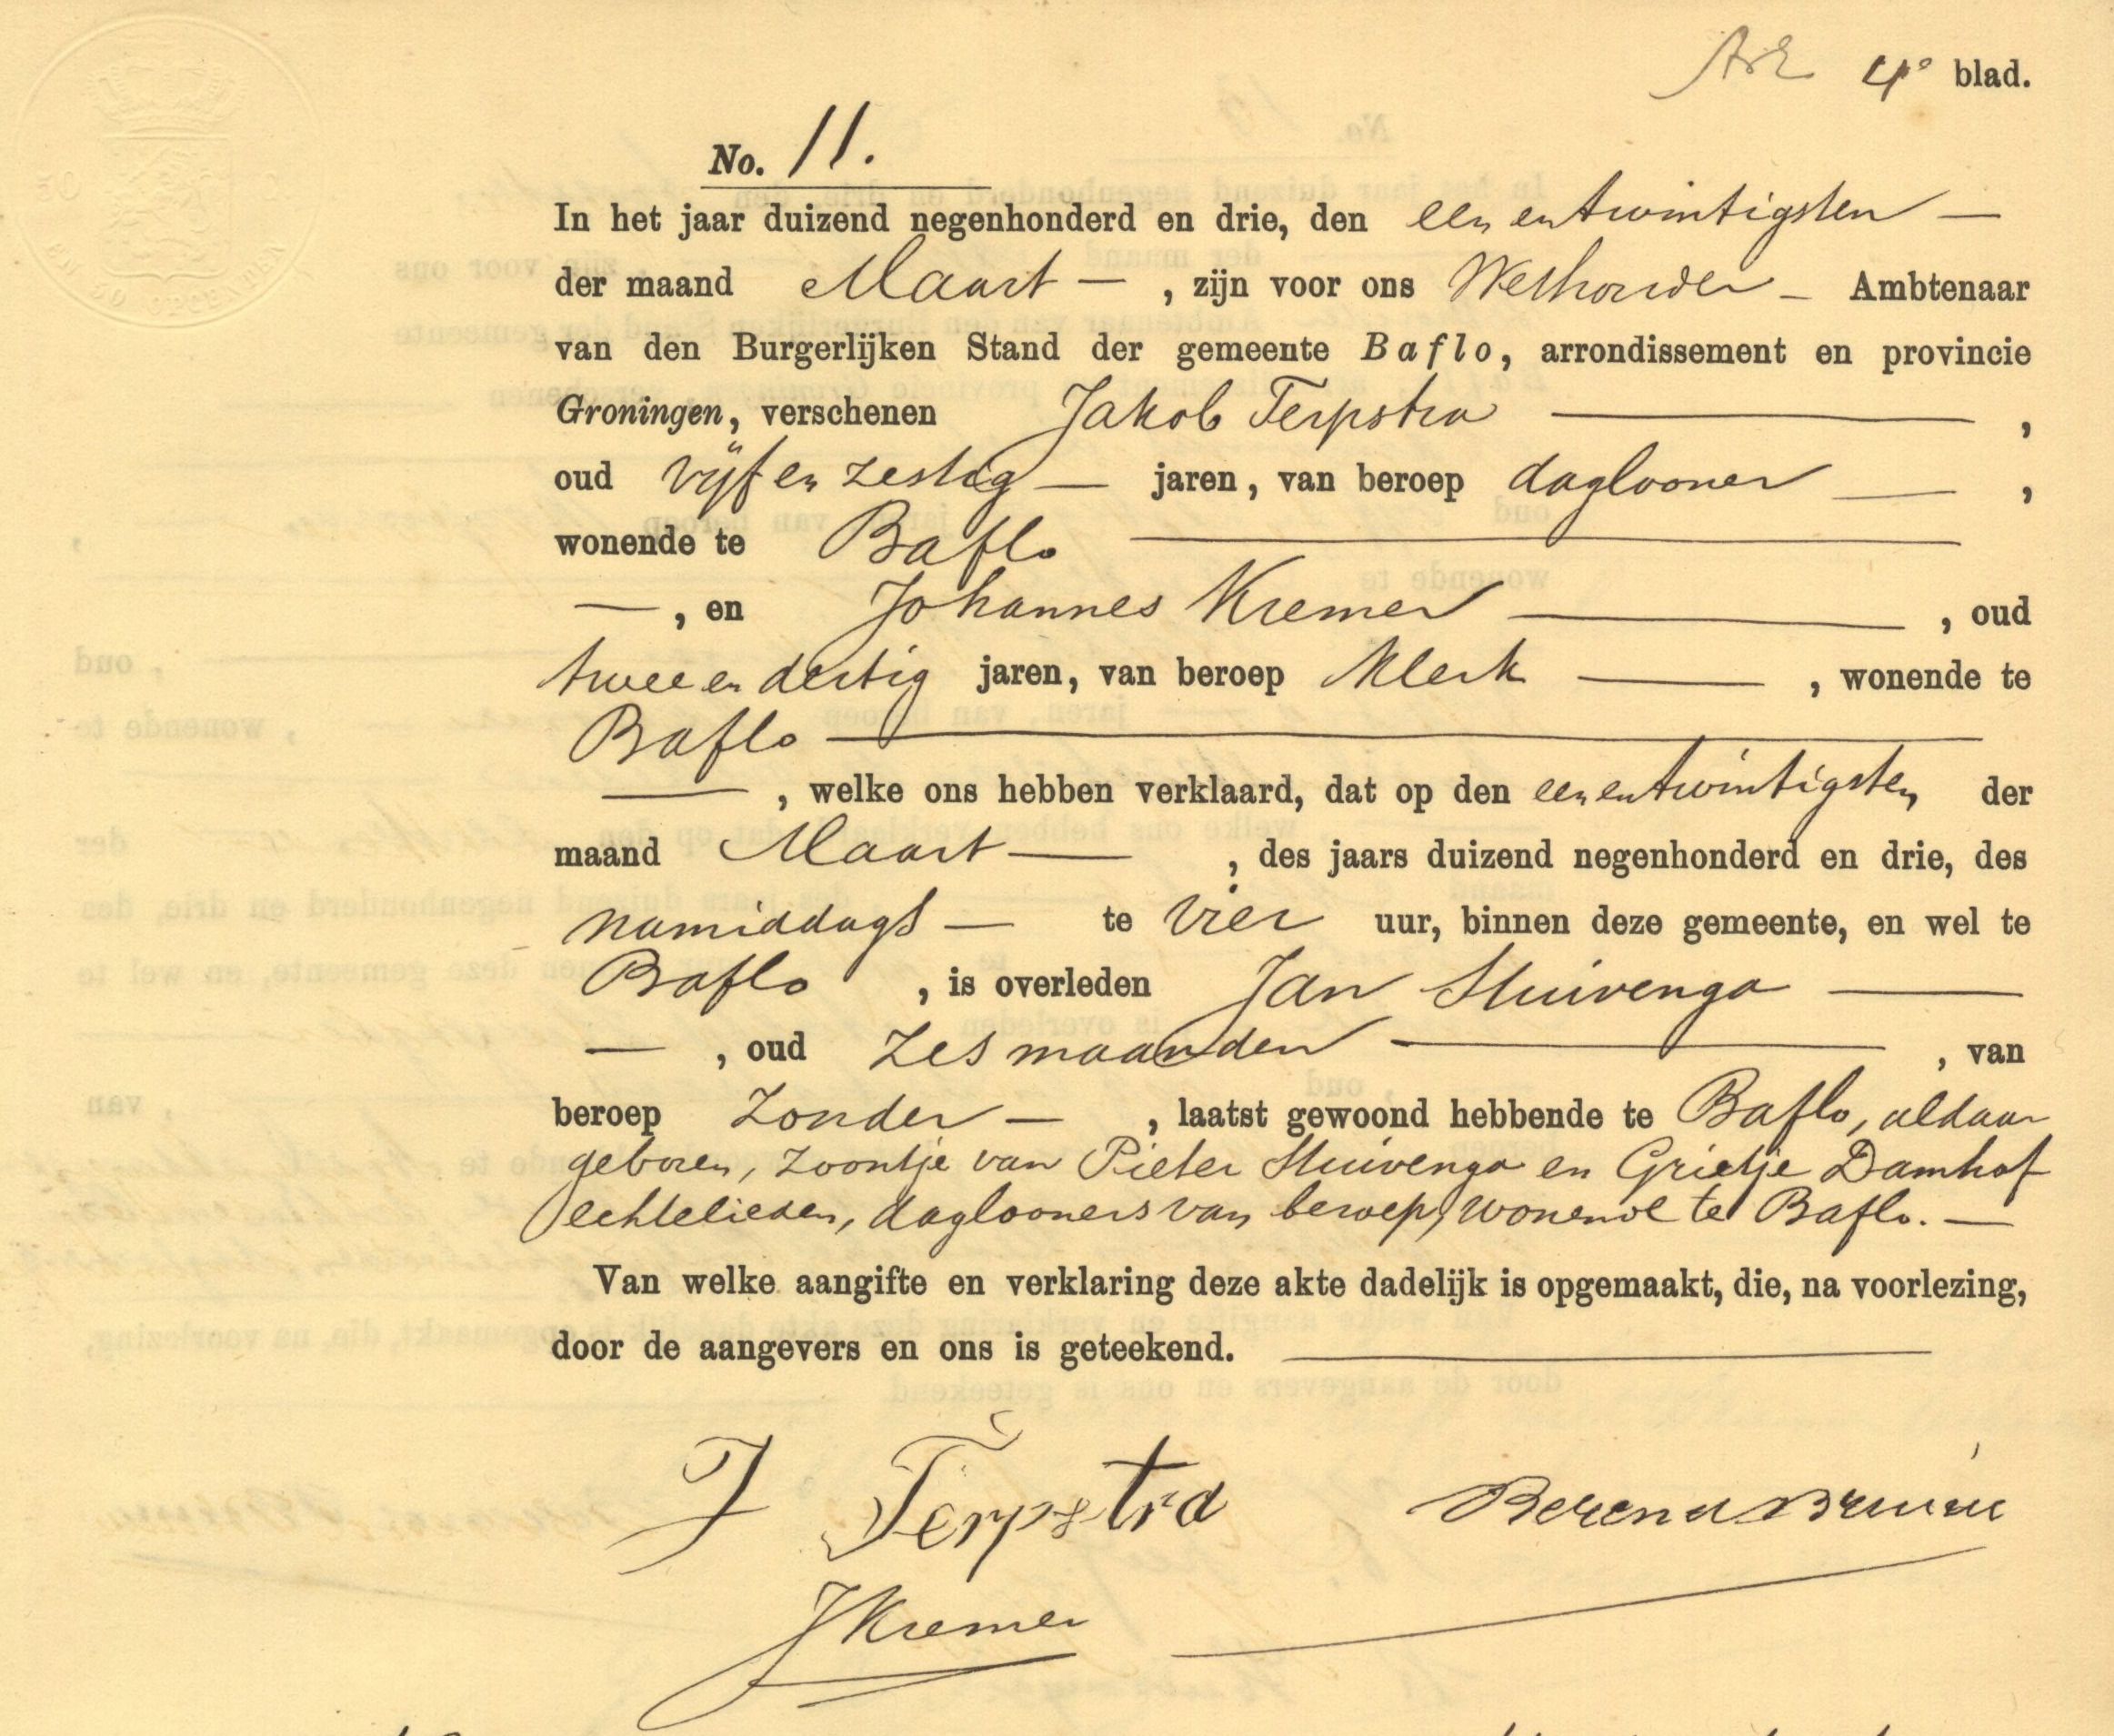 4e blad.
No. 11.
In het jaar duizend negenhonderd en drie, den een en twintigsten
der maand Maart, zijn voor ons Wethouder Ambtenaar
van den Burgerlijken Stand der gemeente Baflo, arrondissement en provincie
Groningen, verschenen Jakob Terpstra,
oud vijf en zestig jaren, van beroep daglooner,
wonende te Baflo
, en Johannes Kremer, oud
twee en dertig jaren, van beroep klerk, wonende te
Baflo
, welke ons hebben verklaard, dat op den een en twintigsten der
maand Maart, des jaars duizend negenhonderd en drie, des
namiddags te vier uur, binnen deze gemeente, en wel te
Baflo, is overleden Jan Stuivenga
, oud zes maanden, van
beroep zonder, laatst gewoond hebbende te Baflo, aldaar
geboren, zoontje van Pieter Stuivenga en Grietje Damhof
echtelieden, daglooners van beroep, wonende te Baflo.
Van welke aangifte en verklaring deze akte dadelijk is opgemaakt, die, na voorlezing,
door de aangevers en ons is geteekend.
J Terpstra
Berend
JKremer